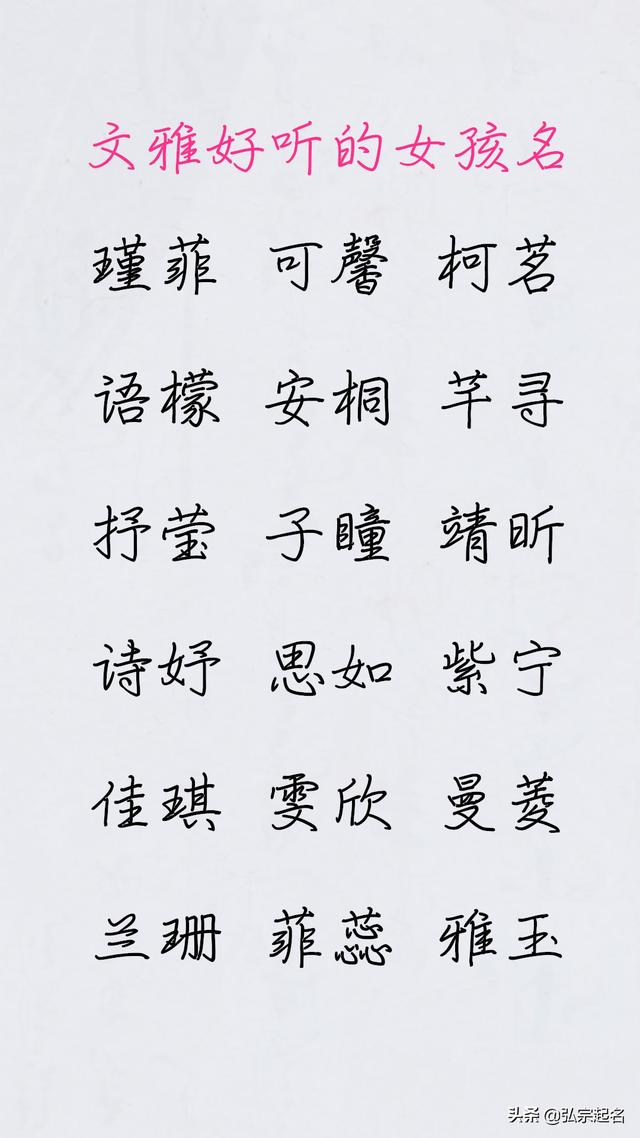 文雅好听的女孩名
瑾菲 可馨 柯茗
语檬 安桐 芊寻
抒莹 子瞳 靖昕
诗妤 思如 紫宁
佳琪 雯欣 曼菱
兰珊 菲蕊 雅玉
头条 @弘宗起名